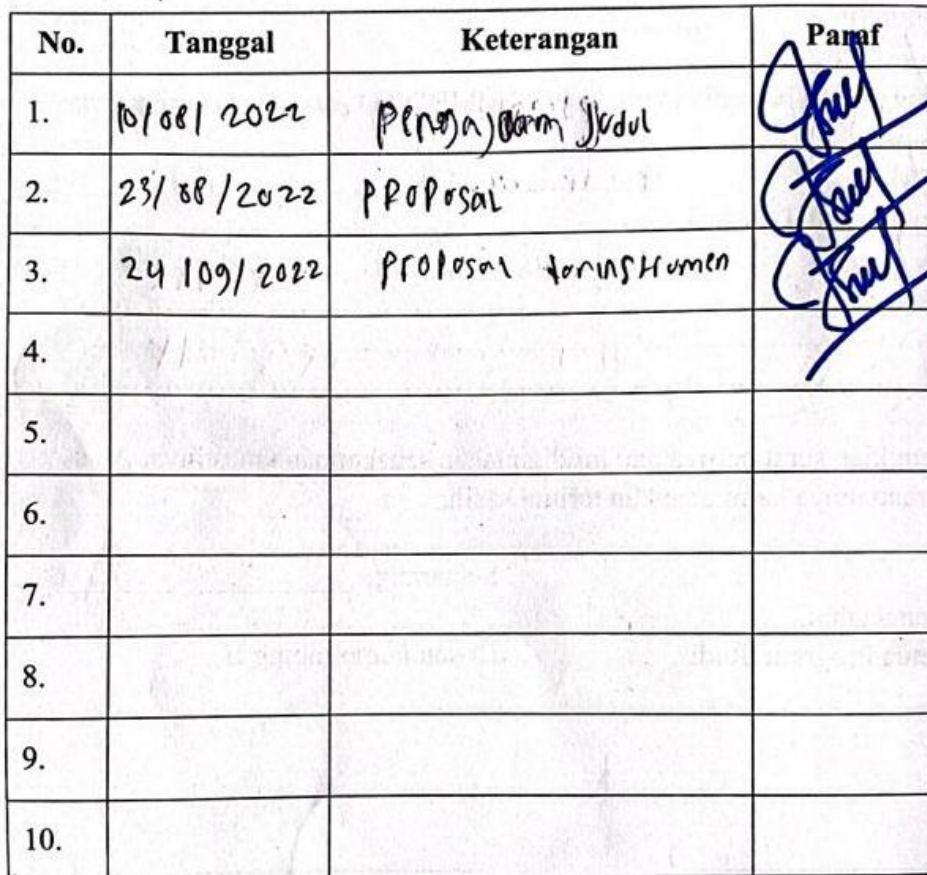 No. Tanggal Keterangan Paraf
1. 10/08/2022 Pengajuan Judul
2. 23/08/2022 PROPOSAL
3. 24/09/2022 Proposal instrumen
4.
5.
6.
7.
8.
9.
10.